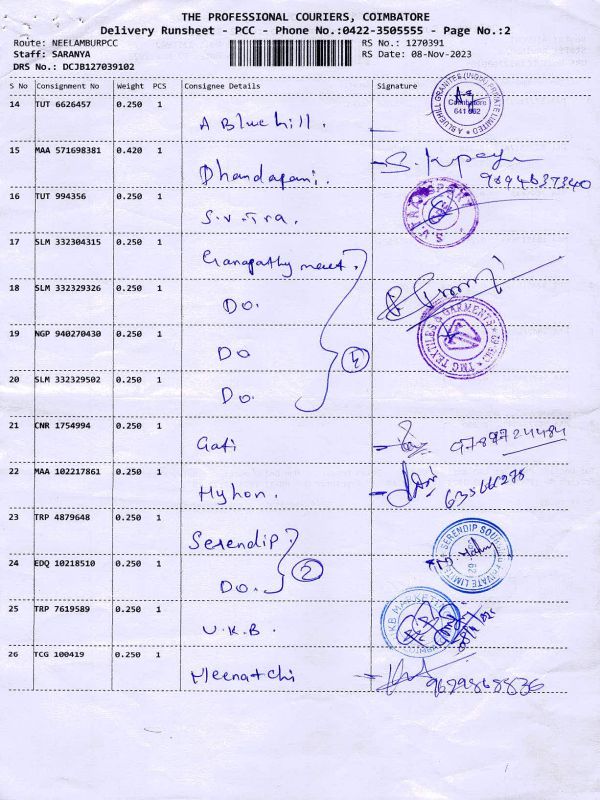 THE PROFESSIONAL COURIERS, COIMBATORE
Delivery Runsheet - PCC - Phone No.:0422-3505555 - Page No.:2
Route: NEELAMBURPCC RS No.: 1270391
Staff: SARANYA RS Date: 08-Nov-2023
DRS No.: DCJB127039102
S No Consignment No Weight PCS Consignee Details Signature
14 TUT 6626457 0.250 1
A Bluehill.
Coimbatore
15 MAA 571698381 0.420 1
Dhandapani.
9894637340
16 TUT 994356 0.250 1
S.V. Tra.
17 SLM 332304315 0.250 1
Ganapathy meet.
18 SLM 332329326 0.250 1
Do.
19 NGP 940270430 0.250 1
Do
TMG TEXTILES & GARMENTS
20 SLM 332329502 0.250 1
Do.
21 CNR 1754994 0.250 1
Gati
9789724484
22 MAA 102217861 0.250 1
Hyhon.
23 TRP 4879648 0.250 1
Serendip.
24 EDQ 10218510 0.250 1
Do.
2
25 TRP 7619589 0.250 1
U.K.B.
26 TCG 100419 0.250 1
Meenatchi